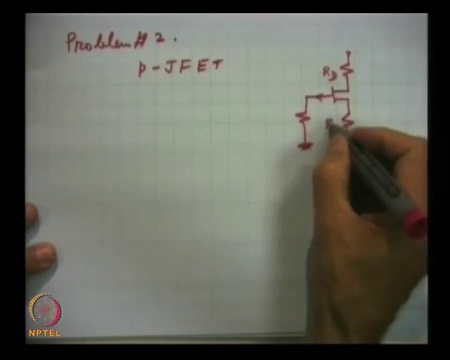 Problem # 2.
p-JFET
R_D
NPTEL